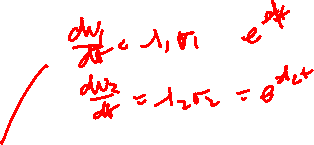 dw₁/dt = λ₁σ₁ e^λt
dw₂/dt = λ₂σ₂ = e^λ₂t